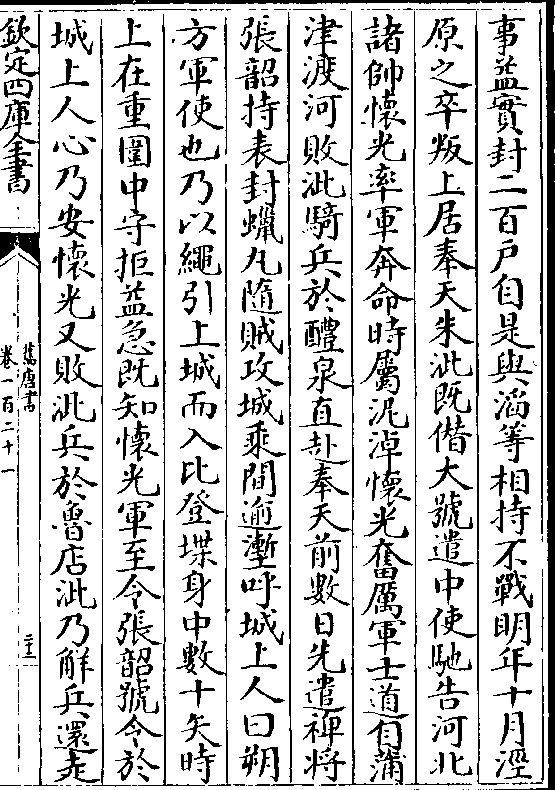 事益實封二百戸自是與滔等相持不戰明年十月涇
原之卒叛上居奉天朱泚既僭大號遣中使馳告河北
諸帥懷光率軍奔命時屬泥淖懷光奮厲軍士道自蒲
津渡河敗泚騎兵於醴泉直赴奉天前數日先遣裨將
張韶持表封蠟丸隨賊攻城乘間逾塹呼城上人曰朔
方軍使也乃以繩引上城而入比登堞身中數十矢時
上在重圍中守拒益急既知懷光軍至令張韶號令於
城上人心乃安懷光又敗泚兵於魯店泚乃解兵還走
欽定四庫全書
舊唐書
卷一百二十一
二十二